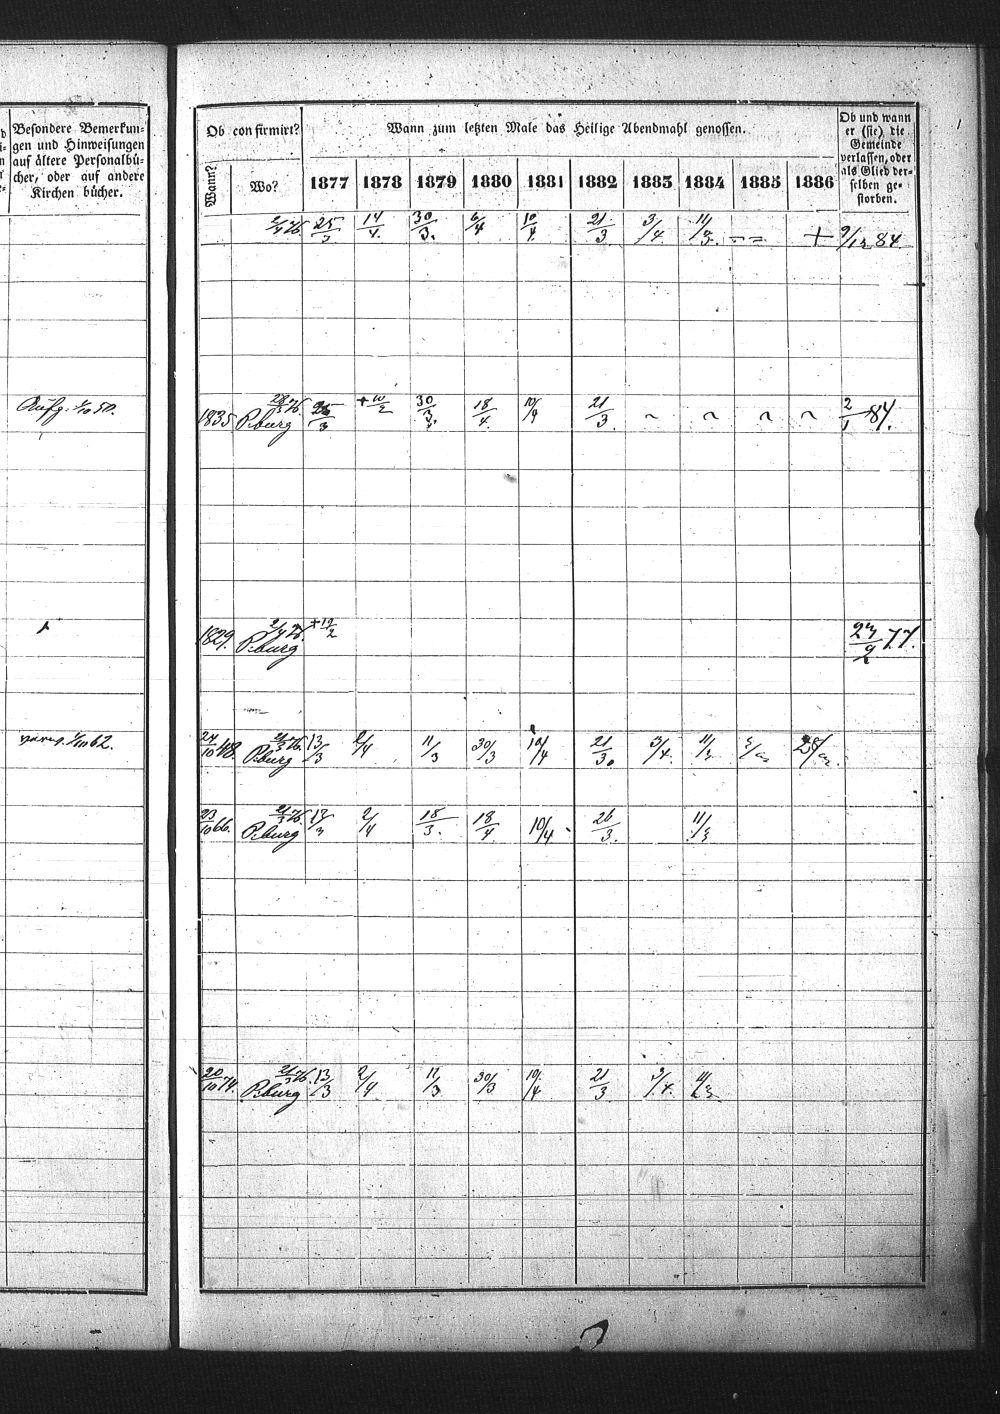 Besondere Bemerkun-
gen und Hinweisungen
auf ältere Personalbü-
cher, oder auf andere
Kirchenbücher.
Aufg. 1/10 50.
1/10 62.
Ob confirmirt?
Wann zum letzten Male das Heilige Abendmahl genossen.
Ob und wann
er (sie) die
Gemeinde
verlassen, oder
als Glied der-
selben ge-
storben.
Wann?
Wo?
1877 1878 1879 1880 1881 1882 1883 1884 1885 1886
2/4 76. 25/3 14/4. 30/3. 6/4 10/4. 21/3 3/4. 11/3. + 9/12 84.
1835 P.burg 25/3 30/3. 18/4. 10/4 21/3. ~ ~ ~ ~ 2/1 84.
1829. 2/4 76. P.burg 77.
24/10 48. 21/3 76. P.burg 13/3 2/4 11/3 30/3 10/4 21/3. 3/4. 11/3
23/10 66. 21/3 76. P.burg 13/3 2/4 18/3. 18/4. 10/4. 26/3. 11/3
20/10 74. 21/3 76. P.burg 13/3 2/4 11/3 30/3 10/4 21/3 3/4. 11/3